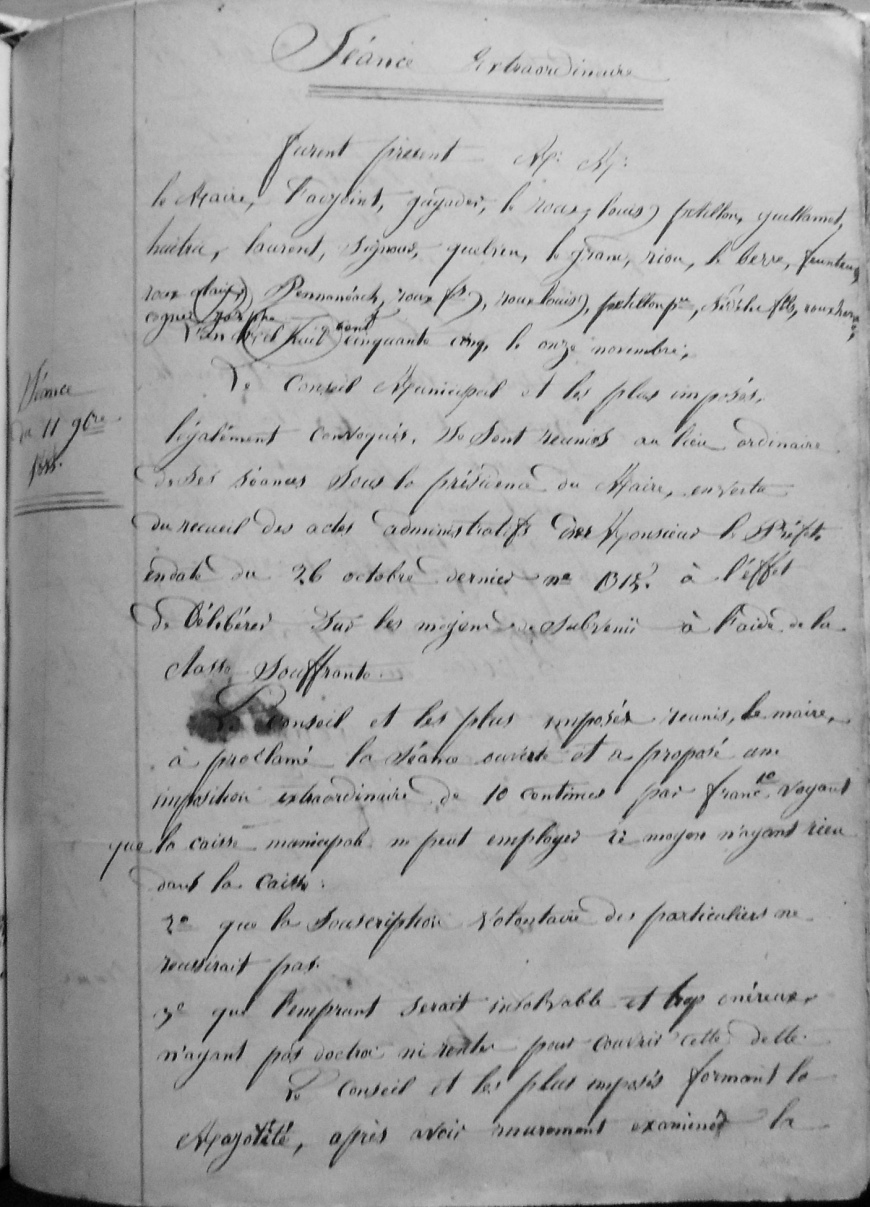 Séance Extraordinaire
furent présent M. M.
le Maire, l'adjoint, guyader, le roux louis) petillon, guillamet,
laurent, quelren, le gram, riou, le berre,
Pennanéach, roux, roux louis), petillon pre,
L'an Mil huit cent cinquante cinq, le onze novembre,
Séance
du 11 9bre
1855.
Le Conseil Municipal et les plus imposés,
légalement convoqués. Se Sont reunies au lieu ordinaire
de Ses séances Sous la présidence du Maire, en vertu
du recueil des actes administratifs de Monsieur le Préfet,
en date du 26 octobre dernier no à l'éffet
de Délibérer Sur les moyens de Subvenir à l'aide de la
Classe Souffrante.
Le Conseil et les plus imposés reunis, le maire,
à proclamé la Séance ouverte et a proposé une
imposition extraordinaire de 10 centimes par franc 1o Voyant
que la caisse municipale ne peut employer ce moyen n'ayant rien
dans la Caisse.
2o que la Souscription Volontaire des particuliers ne
reussirait pas.
3o que l'emprunt serait insolvable et trop onéreux,
n'ayant pas doctroi ni rentes pour couvrir cette dette.
Le Conseil et les plus imposés formant la
Majorité, après avoir murement examiner la